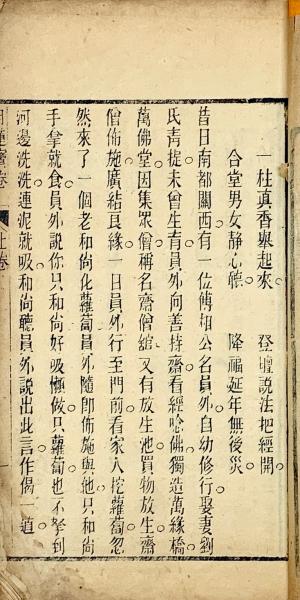 一柱真香舉起來　登壇說法把經開
合堂男女靜心聽　降福延年無後災
昔日南都關西有一位傅相公名員外自幼修行娶妻劉
氏青提未曾生育員外向善持齋看經唸佛獨造萬緣橋
萬佛堂因集眾僧稱名齋僧館又有放生池買物放生齋
僧佈施廣結良緣一日員外行至門前看家人挖蘿蔔忽
然來了一個老和尚化蘿蔔員外隨卽佈施與他只和尚
手拿就食員外說你只和尚好吸懶做只蘿蔔也不拏到
河邊洗洗連泥就吸和尚聽員外說出此言作偈一道
卷　上卷